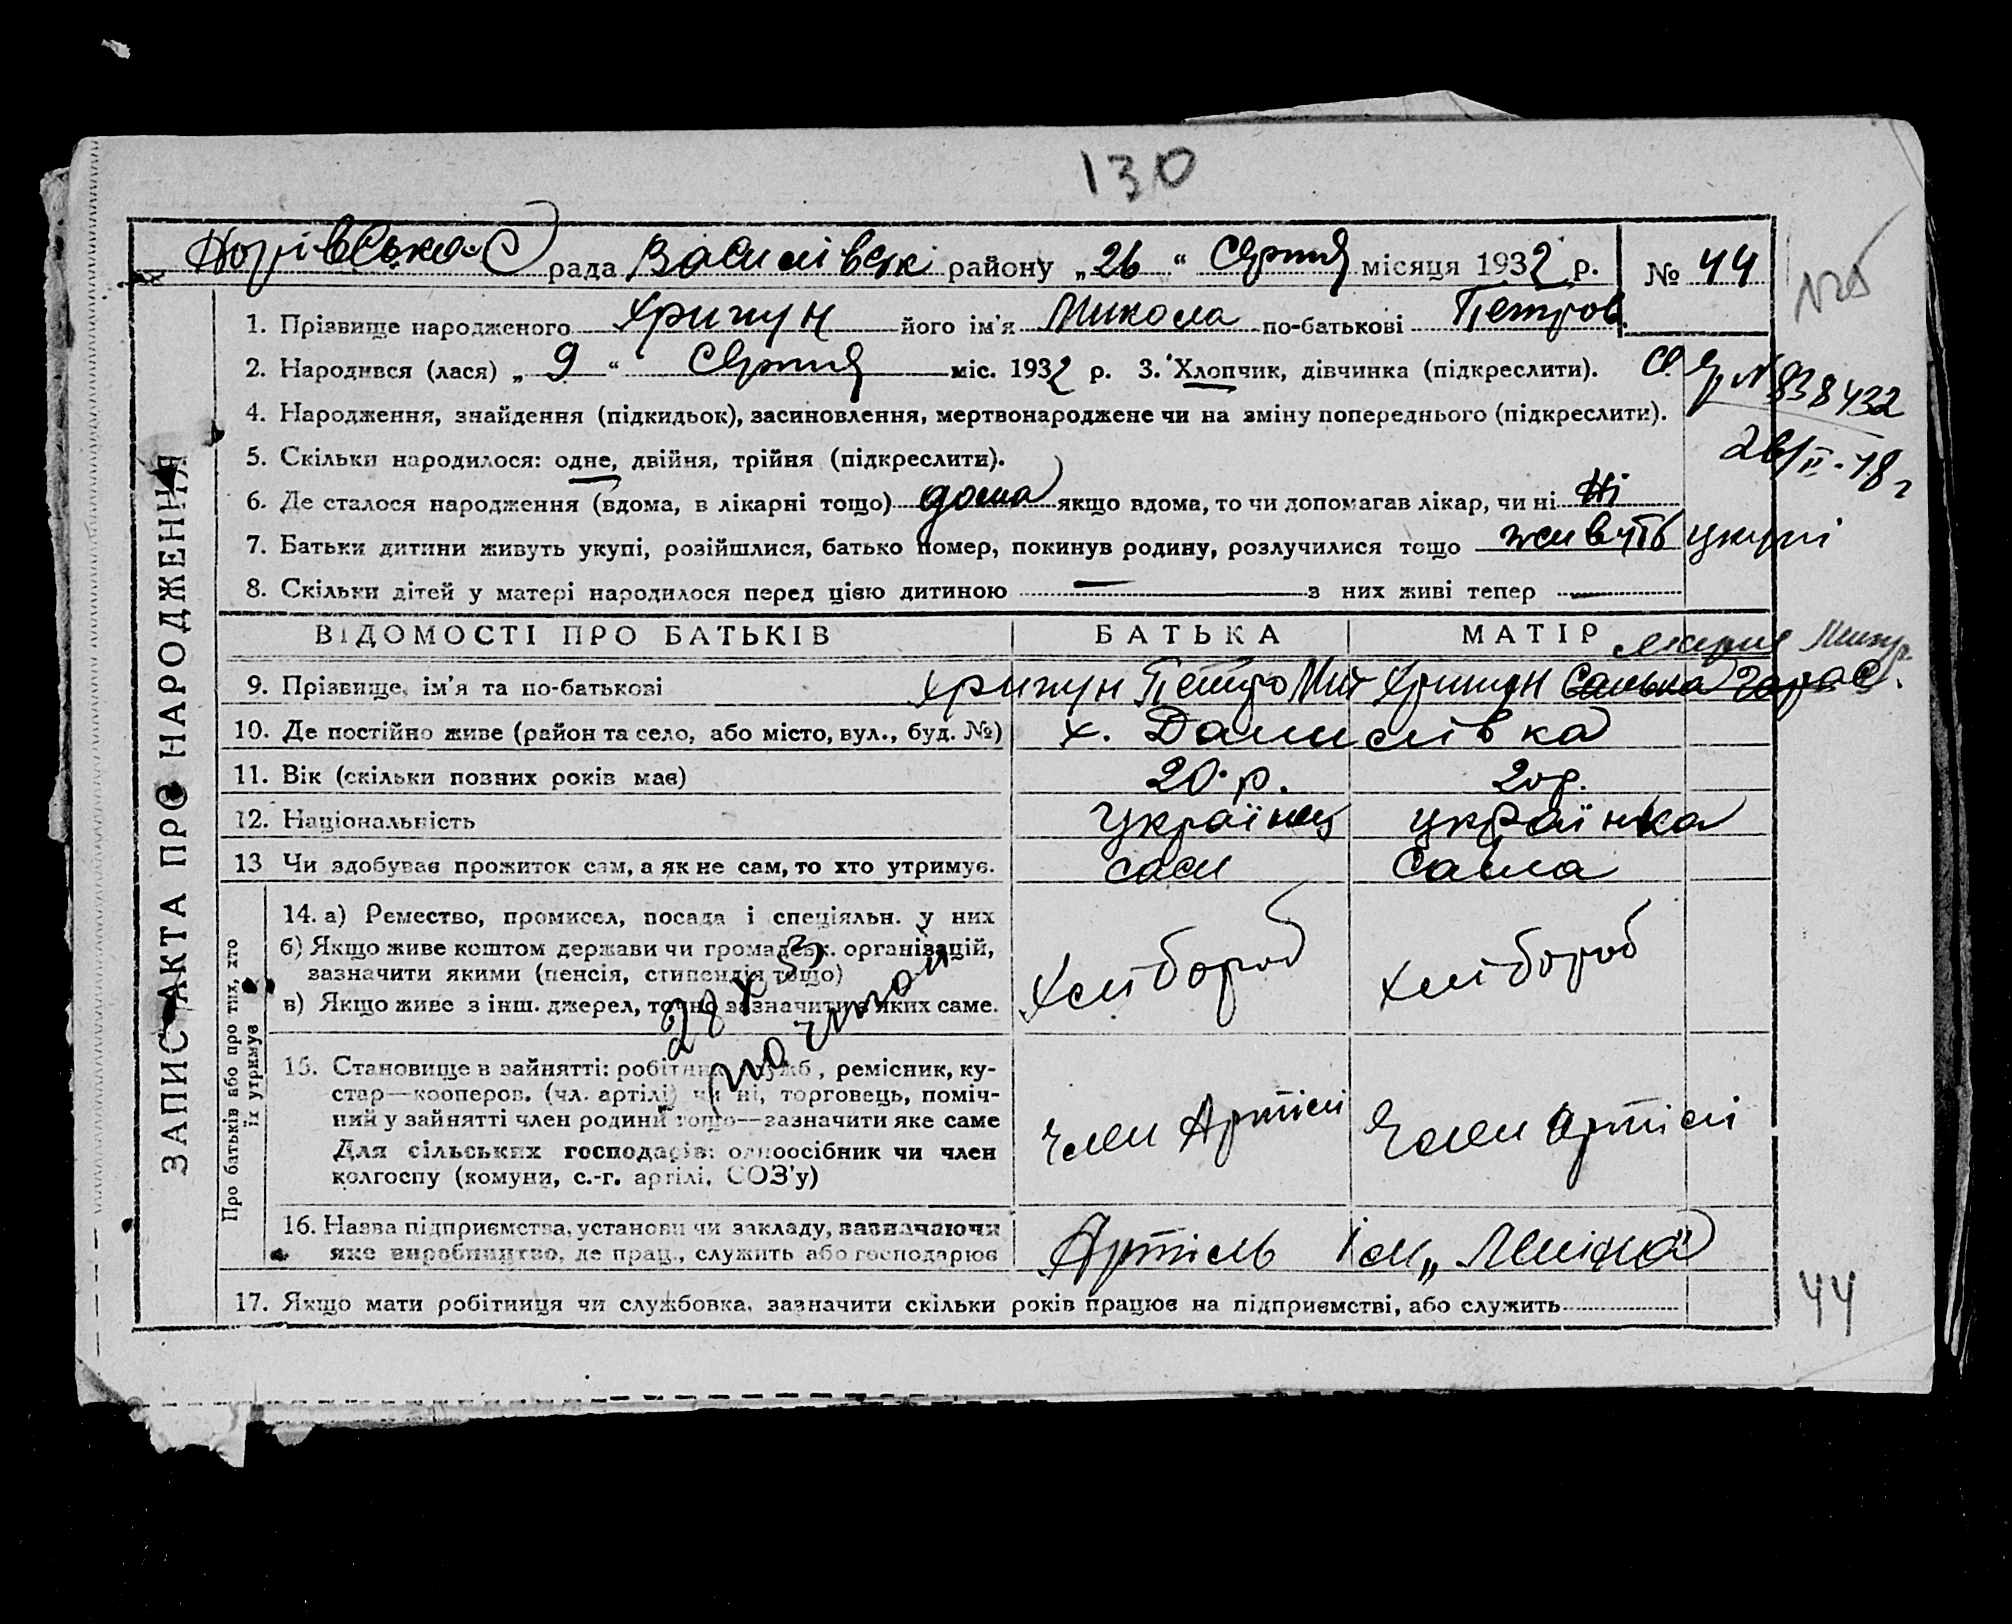 130
рада Василівськ району „26“ Серпня місяця 1932 р. № 44
1. Прізвище народженого Хрипун його ім'я Микола по-батькові Петров.
2. Народився (лася) „9“ Серпня міс. 1932 р. 3. Хлопчик, дівчинка (підкреслити).
838432
4. Народження, знайдення (підкидьок), засиновлення, мертвонароджене чи на зміну попереднього (підкреслити).
5. Скільки народилося: одне, двійня, трійня (підкреслити).
6. Де сталося народження (вдома, в лікарні тощо) дома якщо вдома, то чи допомагав лікар, чи ні Ні
7. Батьки дитини живуть укупі, розійшлися, батько помер, покинув родину, розлучилися тощо живуть укупі
8. Скільки дітей у матері народилося перед цією дитиною — з них живі тепер —
ЗАПИС АКТА ПРО НАРОДЖЕННЯ
ВІДОМОСТІ ПРО БАТЬКІВ БАТЬКА МАТІР
9. Прізвище, ім'я та по-батькові Хрипун Петро Мит Хрипун
10. Де постійно живе (район та село, або місто, вул., буд. №) х. Данилівка
11. Вік (скільки повних років має) 20 р. 20 р.
12. Національність Українець українка
13 Чи здобуває прожиток сам, а як не сам, то хто утримує. сам сама
Про батьків або про тих, хто
їх утримує
14. а) Ремество, промисел, посада і спеціяльн. у них
б) Якщо живе коштом держави чи громадськ. організацій,
зазначити якими (пенсія, стипендія тощо)
в) Якщо живе з інш. джерел, точно зазначити з яких саме.
Хлібороб хлібороб
15. Становище в зайнятті: робітник, служб, ремісник, ку-
стар—кооперов. (чл. артілі) чи ні, торговець, поміч-
ний у зайнятті член родини тощо—зазначити яке саме
Для сільських господарів: одноосібник чи член
колгоспу (комуни, с.-г. артілі, СОЗ'у)
член Артілі Член Артілі
16. Назва підприємства, установи чи закладу, зазначаючи
яке виробництво, де прац., служить або господарює
Артіль ім „Леніна“
17. Якщо мати робітниця чи службовка, зазначити скільки років працює на підприємстві, або служить
44